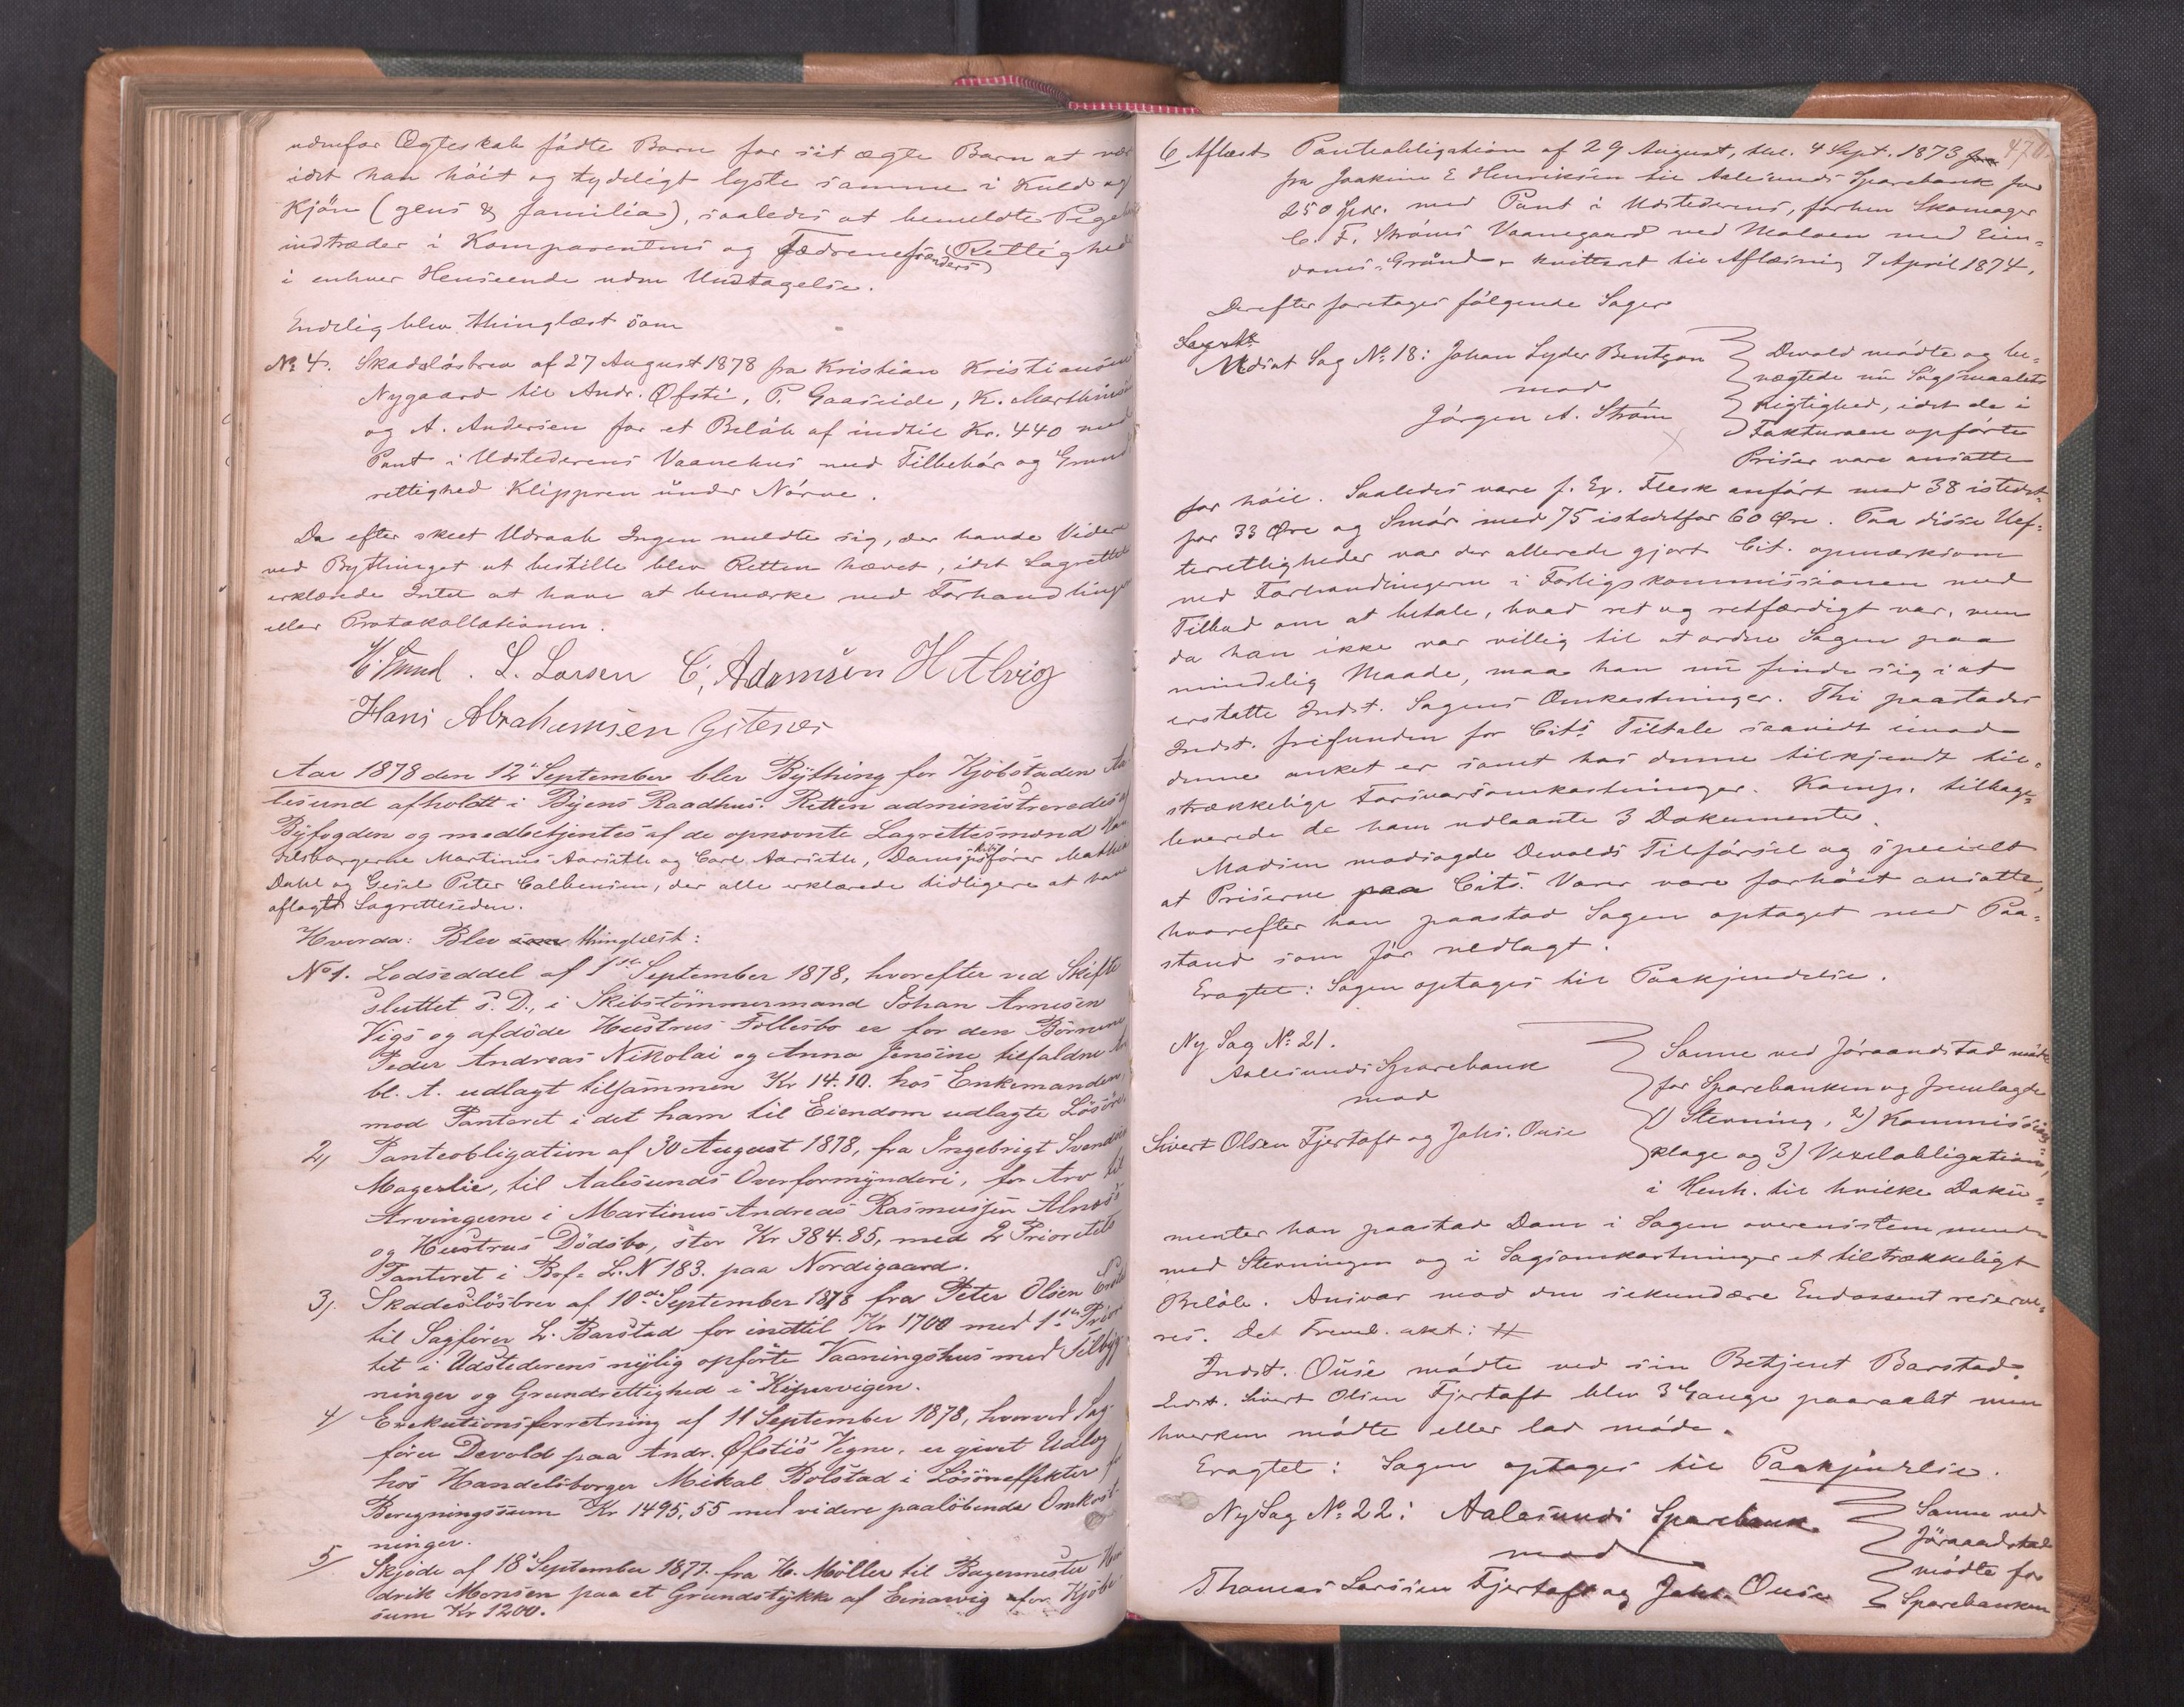 udenfor Ægteskab fødte Barn for sit ægte Barn at være
idet han höit og tydeligt lyste samme i Kuld og
Kjön (gens & familia), saaledes at bemeldte Pigebarn
indtræder i Komparentens og Fædrenefrænders Rettigheder
i enhver Henseende uden Undtagelse.
Endelig blev thinglæst som
No 4. Skadeslösbrev af 27 August 1878 fra Kristian Kristiansen
Nygaard til Andr. Øfsti, P. Gaaseide, K. Marthinsen
og A. Andersen for et Belöb af indtil Kr. 440 med
Pant i Udstederens Vaanehus med Tilbehör og Grund-
rettighed Klipperen under Nörve.
Da efter skeet Udraab Ingen meldte sig, der havde Videre
ved Bythinget at bestille blev Retten hævet, idet Lagrettet
erklærede Intet at have at bemærke ved Forhandlingen
eller Protokollationen.
L. Larsen C. Adamsen H Alvig
Hans Abrahamsen Gjitenes
Aar 1878 den 12te September blev Bything for Kjöbstaden Aa
lesund afholdt i Byens Raadhus. Retten administreredes af
Byfogden og medbetjentes af de opnævnte Lagrettesmænd Han
delsborgerne Martinus Aarseth og Carl Aarseth, Dampskibsförer Mathias
Dahl og Gesel Peter Calbensen, der alle erklærede tidligere at have
aflagt Lagretteseden.
Hvorda: Blev som thinglæst:
No 1. Lodseddel af 1ste September 1878, hvorefter ved Skifte
sluttet s. D., i Skibstömmermand Johan Arnesen
Vigs og afdöde Hustrus Fællesbo er for den Börnene
Peder Andreas Nikolai og Anna Jensine tilfaldne Arv
bl. A. udlagt tilsammen Kr 14.10. hos Enkemanden,
mod Panteret i det ham til Eiendom udlagte Lösöre.
2, Panteobligation af 30 August 1878, fra Ingebrigt Svendsen
Magerlie, til Aalesunds Overformynderi, for Arv til
Arvingerne i Martinus Andreas Rasmussen Alnæs's
og Hustrus Dödsbo, stor Kr 384.85, med 2 Prioritets
Panteret i Bsf. L. N 183. paa Nordigaard.
3, Skadeslösbrev af 10de September 1878 fra Peter Olsen
til Sagförer L. Barstad for indtil Kr 1700 med 1ste Priori
tet i Udstederens nylig opförte Vaaningshus med Tilbyg
ninger og Grundrettighed i Kipervigen.
4/ Exekutionsforretning af 11 September 1878, hvorved Sag
förer Devold paa Andr. Øfsti's Vegne, er givet Udlæg
hos Handelsborger Mikal Bolstad i Lösöreffekter for
Beregningssum Kr 1495,55 med videre paalöbende Omkost-
ninger.
5/ Skjöde af 18de September 1877. fra H. Möller til Bagermester Hen
drik Monsen paa et Grundstykke af Einarvig for Kjöbe
sum Kr 1200.
470.
6 Aflæst Panteobligation af 29 August, thl. 4 Sept. 1873 fra
fra Joakim E Henriksen til Aalesunds Sparebank for
250 Spdr. med Pant i Udstederens, forhen Skomager
C. F. Ströms Vaanegaard ved Moloen med Eien-
doms-Grund. kvitteret til Aflæsning 7 April 1874.
Derefter foretoges fölgende Sager
Udsat Sag No 18: Johan Lyder Bentzon
mod
Jörgen A. Ström
Devold mödte og be-
nægtede nu Sögsmaalets
Rigtighed, idet de i
Fakturaen opförte
Priser vare ansatte
for höit. Saaledes vare f. Ex. Flesk anfört med 38 istedet-
for 33 Øre og Smör med 75 istedetfor 60 Øre. Paa disse Uef-
terretligheder var der allerede gjort Cit. opmærksom
ved Forhandlingerne i Forligskommissionen med
Tilbud om at betale, hvad ret og retfærdigt var, men
da han ikke var villig til at ordne Sagen paa
mindelig Maade, maa han nu finde sig i at
erstatte Indst. Sagens Omkostninger. Thi paastodes
Indst. frifunden for Cits Tiltale saavidt imod
denne anket er samt hos denne tilkjendt til-
strækkelige Forsvarsomkostninger. Komp. tilbage-
leverede de ham udlaante 3 Dokumenter.
Madsen modsagde Devolds Tilförsel og specielt
at Priserne paa Cits. Varer vare forhöit ansatte,
hvorefter han paastod Sagen optaget med Paa-
stand som för nedlagt.
Eragtet: Sagen optages til Paakjendelse.
Ny Sag No 21.
Aalesunds Sparebank
mod
Sivert Olsen Fjertoft og Johs. Ouse
Sanne ved Jöraandstad mödte
for Sparebanken og fremlagde
1) Stevning, 2) Kommissions-
klage og 3) Vexelobligation,
i Henh. til hvilke Doku-
menter han paastod Dom i Sagen overensstemmende
med Stevningen og i Sagsomkostninger et tiltrækkeligt
Belöb. Ansvar mod den sekundære Endossent reserve-
res. Det Freml. akt: #
Indst. Ouse mödte ved sin Betjent Barstad.
Indst. Sivert Olsen Fjertoft blev 3 Gange paaraabt men
hverken mödte eller lod möde.
Eragtet: Sagen optages til Paakjendelse.
Ny Sag No 22: Aalesunds Sparebank
mod
Thomas Larssen Fjertoft og Johs. Ouse
Sanne ved
Jöraandstad
mödte for
Sparebanken